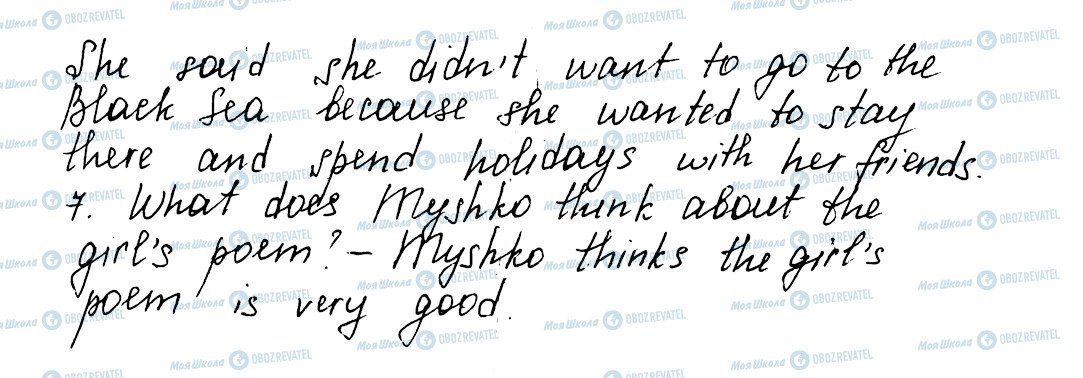 She said she didn't want to go to the
Black Sea because she wanted to stay
there and spend holidays with her friends.
7. What does Myshko think about the
girl's poem? – Myshko thinks the girl's
poem is very good.